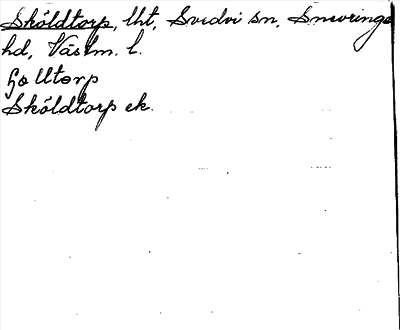 Sköldtorp, lht, Svedvi sn, Snevringe
hd, Västm. l.
Go Utorp
Sköldtorp ek.